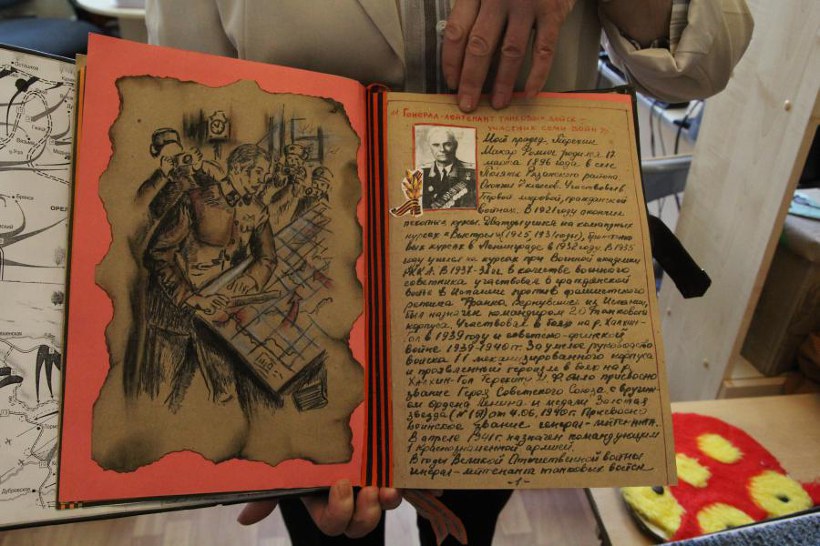 « Генерал-лейтенант танковых войск –
участник семи войн ».
Мой прадед Терёхин
Макар Фомич родился 17
марта 1896 года в селе
Поляны Рязанского района.
Окончил 7 классов. Участвовал в
Первой мировой, гражданской
войнах. В 1921 году окончил
пехотные курсы. Дважды учился на командных
курсах « Выстрел» (1925, 1931 годы), бронетанко-
вых курсах в Ленинграде в 1932 году. В 1935
году учился на курсах при Военной академии
РККА. В 1937-38 гг. в качестве военного
советника участвовал в гражданской
войне в Испании против фашистского
режима Франко. Вернувшись из Испании,
был назначен командиром 20 танкового
корпуса. Участвовал в боях на р. Халхин-
Гол в 1939 году и советско-финской
войне 1939-1940 гг. За умелое руководство
войска 11 механизированного корпуса
и проявленный героизм в боях на р.
Халхин-Гол Терёхину М.Ф. было присвоено
звание Героя Советского Союза с вручени-
ем Ордена Ленина и медали Золотая
звезда (№ 19) от 4.06.1940 г. Присвоено
воинское звание генерал-лейтенанта.
В апреле 1941 г. назначен командующим
1 краснознаменной армией.
В годы Великой Отечественной войны
генерал-лейтенанта танковых войск
-1-